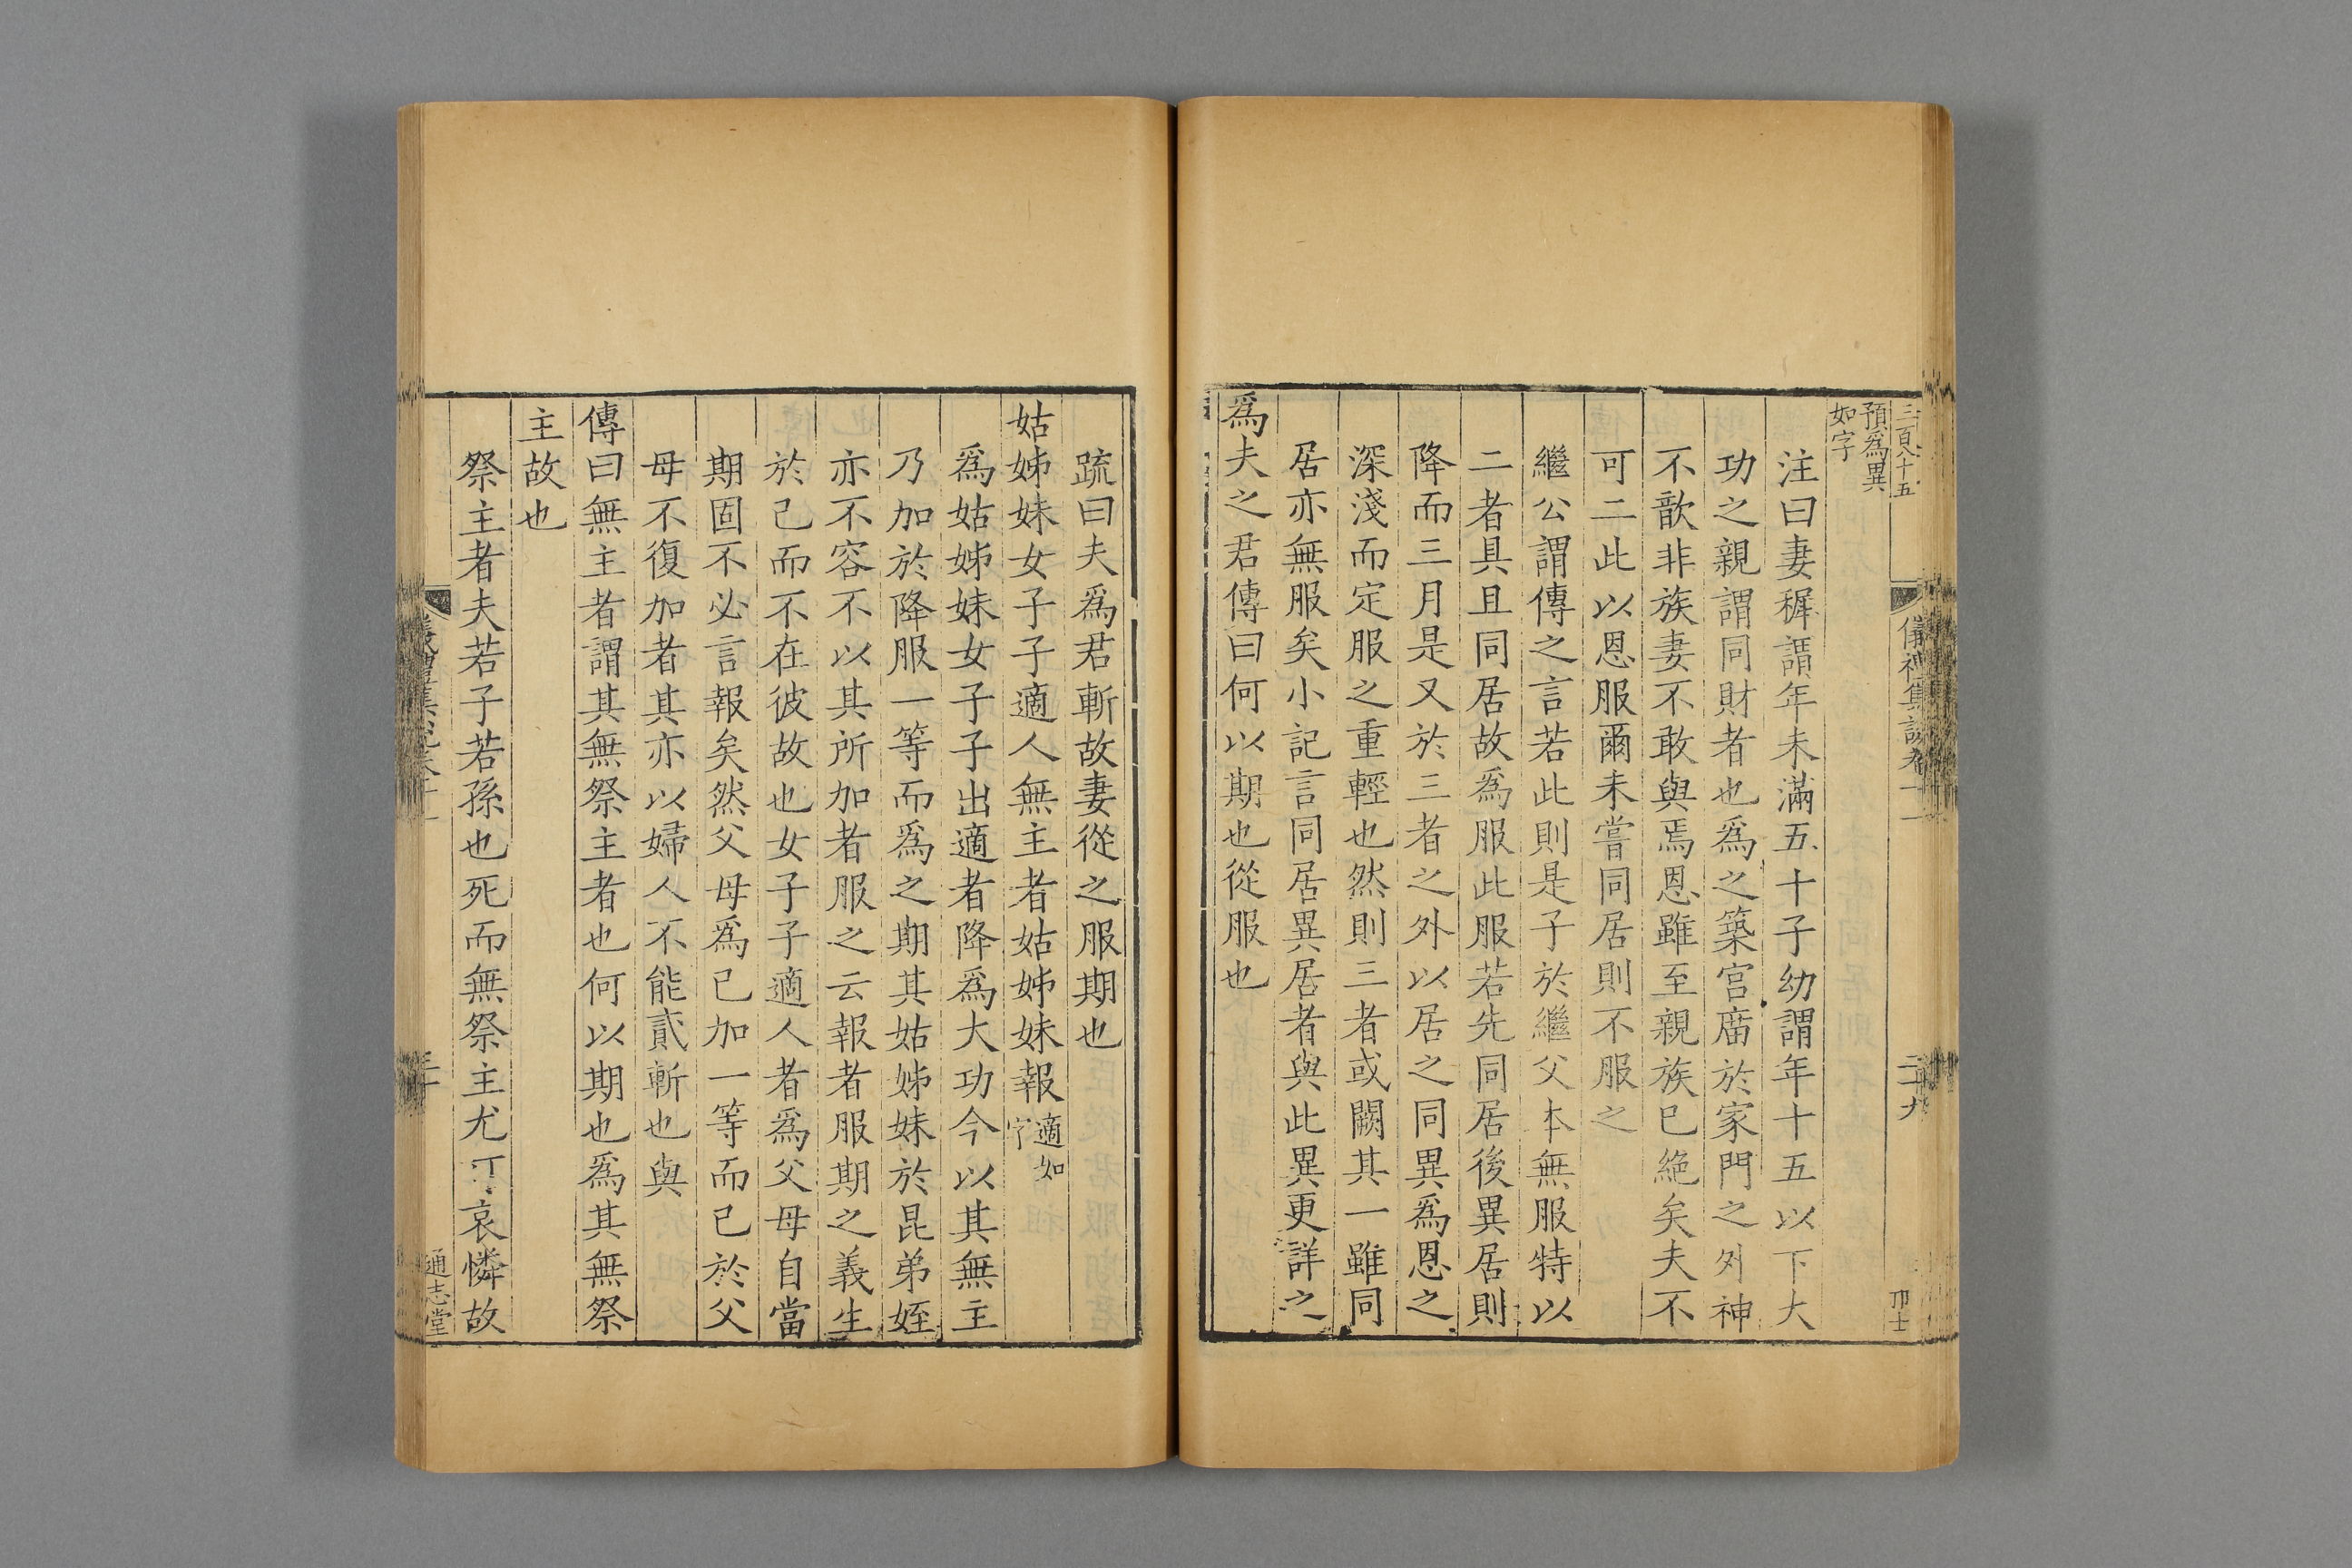 三百八十五
儀禮集說卷十一
二十九
預爲異
如字
注曰妻穉謂年未滿五十子幼謂年十五以下大
功之親謂同財者也爲之築宮庿於家門之外神
不歆非族妻不敢與焉恩雖至親族已絶矣夫不
可二此以恩服爾未嘗同居則不服之
繼公謂傳之言若此則是子於繼父本無服特以
二者具且同居故爲服此服若先同居後異居則
降而三月是又於三者之外以居之同異爲恩之
深淺而定服之重輕也然則三者或闕其一雖同
居亦無服矣小記言同居異居者與此異更詳之
爲夫之君傳曰何以期也從服也
疏曰夫爲君斬故妻從之服期也
姑姊妹女子子適人無主者姑姊妹報適如字
爲姑姊妹女子子出適者降爲大功今以其無主
乃加於降服一等而爲之期其姑姊妹於昆弟姪
亦不容不以其所加者服之云報者服期之義生
於己而不在彼故也女子子適人者爲父母自當
期固不必言報矣然父母爲己加一等而已於父
母不復加者其亦以婦人不能貳斬也與
傳曰無主者謂其無祭主者也何以期也爲其無祭
主故也
祭主者夫若子若孫也死而無祭主尤可哀憐故
儀禮集說卷十一
三十
通志堂